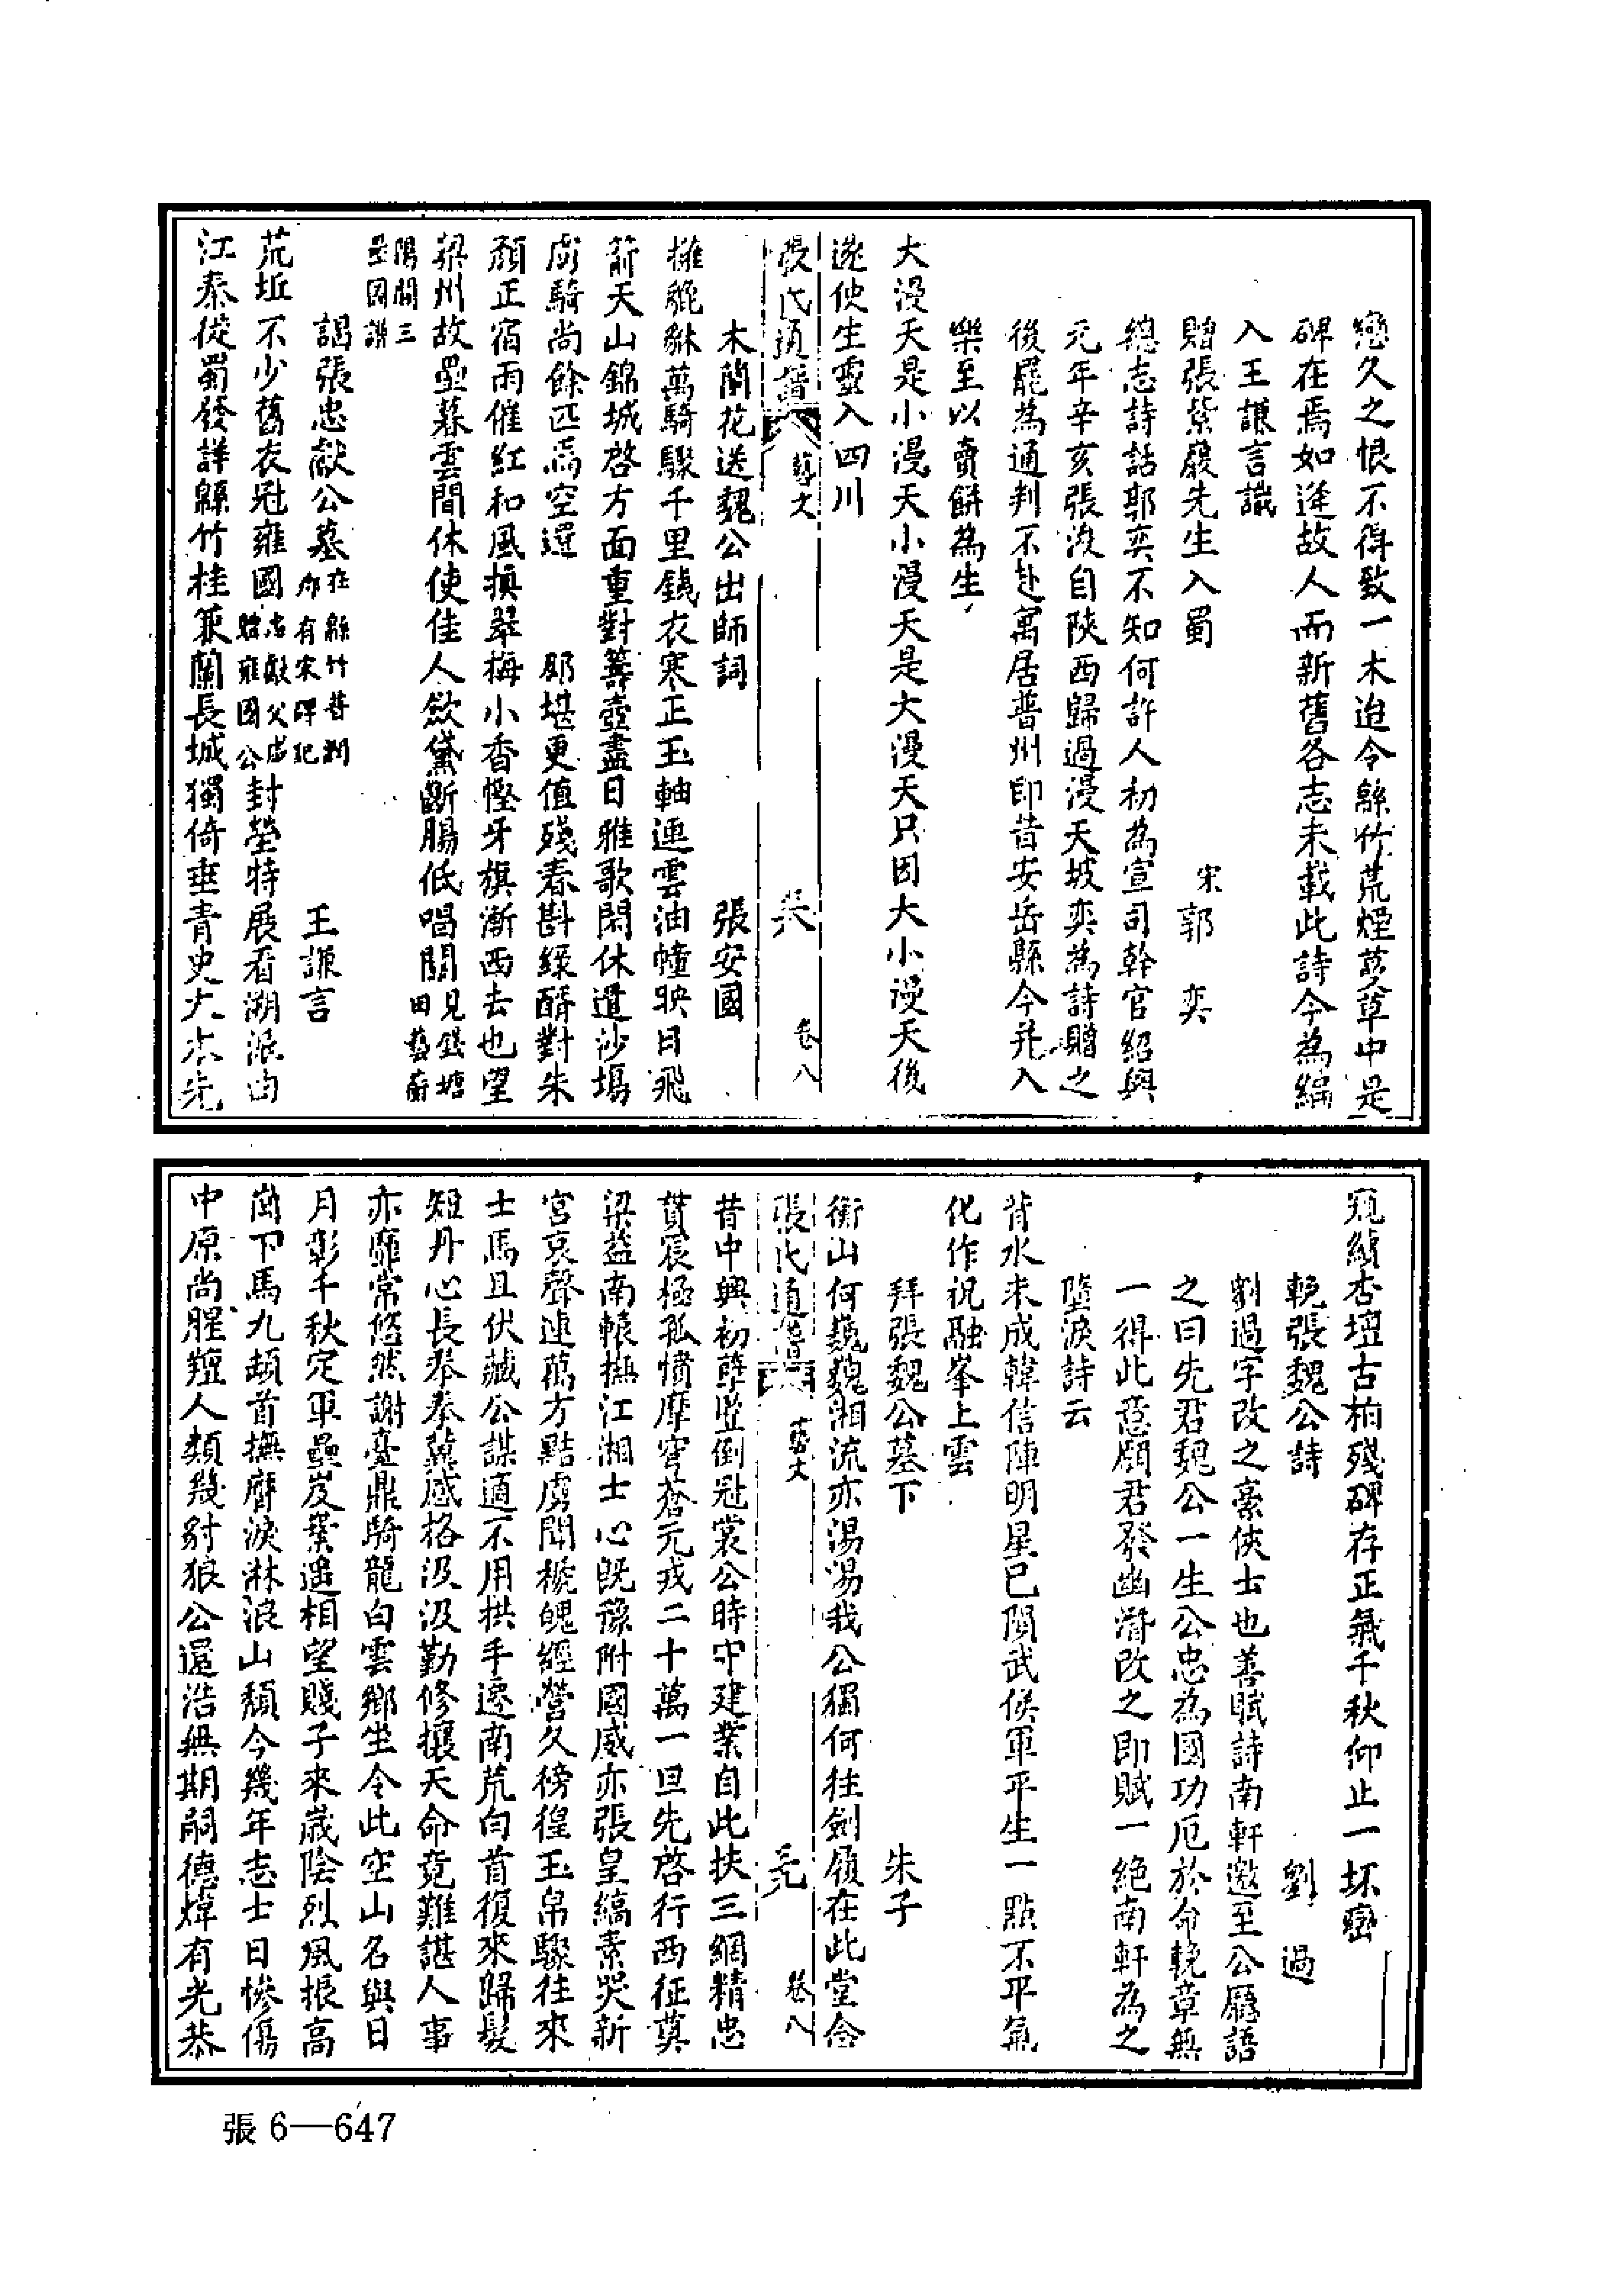 戀久之恨不得致一木迨今緜竹荒煙蔓草中是
碑在焉如逢故人而新舊各志未載此詩今為編
入王謙言識
贈張紫巖先生入蜀　宋郭　奕
總志詩話郭奕不知何許人初為宣司幹官紹興
元年辛亥張浚自陝西歸過漫天坡奕為詩贈之
後罷為通判不赴寓居普州即昔安岳縣今并入
樂至以賣餅為生
大漫天是小漫天小漫天是大漫天只因大小漫天後
遂使生靈入四川
張氏通譜　藝文　卷八
木蘭花送魏公出師詞　張安國
擁貔貅萬騎驟千里鐵衣寒正玉軸連雲油幢映日飛
箭天山錦城啓方面重對籌壺盡日雅歌閑休遣沙場
虜騎尚餘匹馬空還　那堪更值殘春斟綠醑對朱
顏正宿雨催紅和風換翠梅小香慳牙旗漸西去也望
梁州故壘暮雲間休使佳人歛黛斷腸低唱關
見錢塘
田藝蘅
陽關三
疊圖譜
謁張忠獻公墓
在緜竹普潤
鄉有宋碑記
王謙言
荒坵不少舊衣冠雍國
忠獻父咸
贈雍國公
封塋特展看溯派由
江泰從蜀發詳緜竹桂兼蘭長城獨倚垂青史大木先
窺績杏壇古柏殘碑存正氣千秋仰止一坏巒
輓張魏公詩　劉　過
劉過字改之豪俠士也善賦詩南軒邀至公廳語
之曰先君魏公一生公忠為國功厄於命輓章無
一得此意願君發幽潛改之即賦一絕南軒為之
墮淚詩云
背水未成韓信陣明星已隕武侯軍平生一點不平氣
化作祝融峯上雲
拜張魏公墓下　朱子
衡山何巍巍湘流亦湯湯我公獨何往劍履在此堂念
張氏通譜　藝文　卷八
昔中興初孽豎倒冠裳公時守建業自此扶三綱精忠
貫宸極孤憤摩穹蒼元戎二十萬一旦先啓行西征奠
梁益南轅撫江湘士心既豫附國威亦張皇縞素哭新
宮哀聲連萬方黠虜聞褫魄經營久徬徨玉帛驟往來
士馬且伏藏公謀適不用拱手遷南荒白首復來歸髮
短丹心長拳拳冀感格汲汲勤修攘天命竟難諶人事
亦靡常悠然謝臺鼎騎龍白雲鄉坐令此空山名與日
月彰千秋定軍壘岌嶪遙相望賤子來歲陰烈風振高
岡下馬九頓首撫膺淚淋浪山頹今幾年志士日慘傷
中原尚腥羶人類幾豺狼公還浩無期嗣德煒有光恭
張 6—647